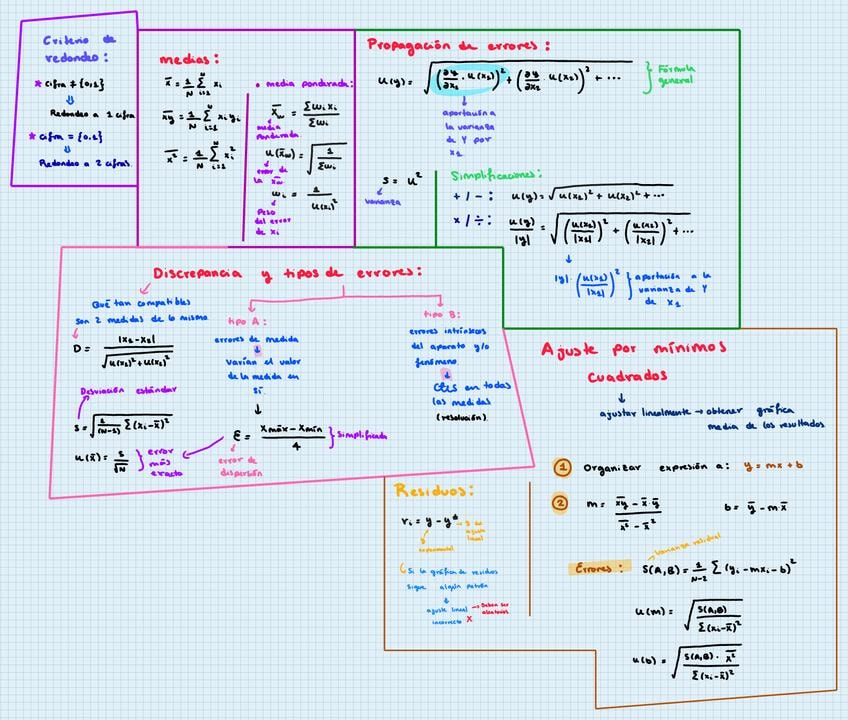 Criterio de
redondeo:
* Cifra ≠ {0,1}
⇓
Redondeo a 1 cifra
* cifra = {0,1}
⇓
Redondeo a 2 cifras.
medias:
x̄ = 1/N Σ(i=1→N) xᵢ
x̄y̅ = 1/N Σ(i=1→N) xᵢ yᵢ
x̄² = 1/N Σ(i=1→N) xᵢ²
• media ponderada:
x̄w = Σωᵢxᵢ / Σωᵢ
media
ponderada
u(x̄w) = √(1 / Σωᵢ)
error de
la x̄w
ωᵢ = 1 / u(xᵢ)²
Peso
del error
de xᵢ
Propagación de errores:
u(y) = √((∂y/∂x₁ · u(x₁))² + (∂y/∂x₂ · u(x₂))² + ...)
} Fórmula
general
↓
aportación a
la varianza
de Y por
x₁
S = u²
varianza
Simplificaciones:
+ / − : u(y) = √(u(x₁)² + u(x₂)² + ...)
× / ÷ : u(y)/|y| = √((u(x₁)/|x₁|)² + (u(x₂)/|x₂|)² + ...)
↓
|y| · (u(x₁)/|x₁|)² } aportación a la
varianza de Y
de x₁
Discrepancia y tipos de errores:
Qué tan compatibles
son 2 medidas de lo mismo
D = |x₁ − x₂| / √(u(x₁)² + u(x₂)²)
Desviación estándar
s = √(1/(N−1) Σ(xᵢ − x̄)²)
u(x̄) = s/√N } error
más
exacto
tipo A:
errores de medida
↓
varían el valor
de la medida en
sí.
↓
ε = (xmáx − xmín)/4 } simplificada
error de
dispersión
tipo B:
errores intrínsecos
del aparato y/o
fenómeno.
↓
Ctes en todas
las medidas
(resolución)
Ajuste por mínimos
cuadrados
↓
ajustar linealmente → obtener gráfica
media de los resultados
① Organizar expresión a: y = mx + b
② m = (x̄y̅ − x̄ · ȳ) / (x̄² − x̄²) b = ȳ − m · x̄
varianza residual
Errores: S(A,B) = 1/(N−2) Σ (yᵢ − mxᵢ − b)²
u(m) = √(S(A,B) / Σ(xᵢ − x̄)²)
u(b) = √(S(A,B) · x̄² / Σ(xᵢ − x̄)²)
Residuos:
rᵢ = y − y*
ajuste
lineal
y
experimental
Si la gráfica de residuos
sigue algún patrón
↓
ajuste lineal → Deben ser
aleatorios
incorrecto X